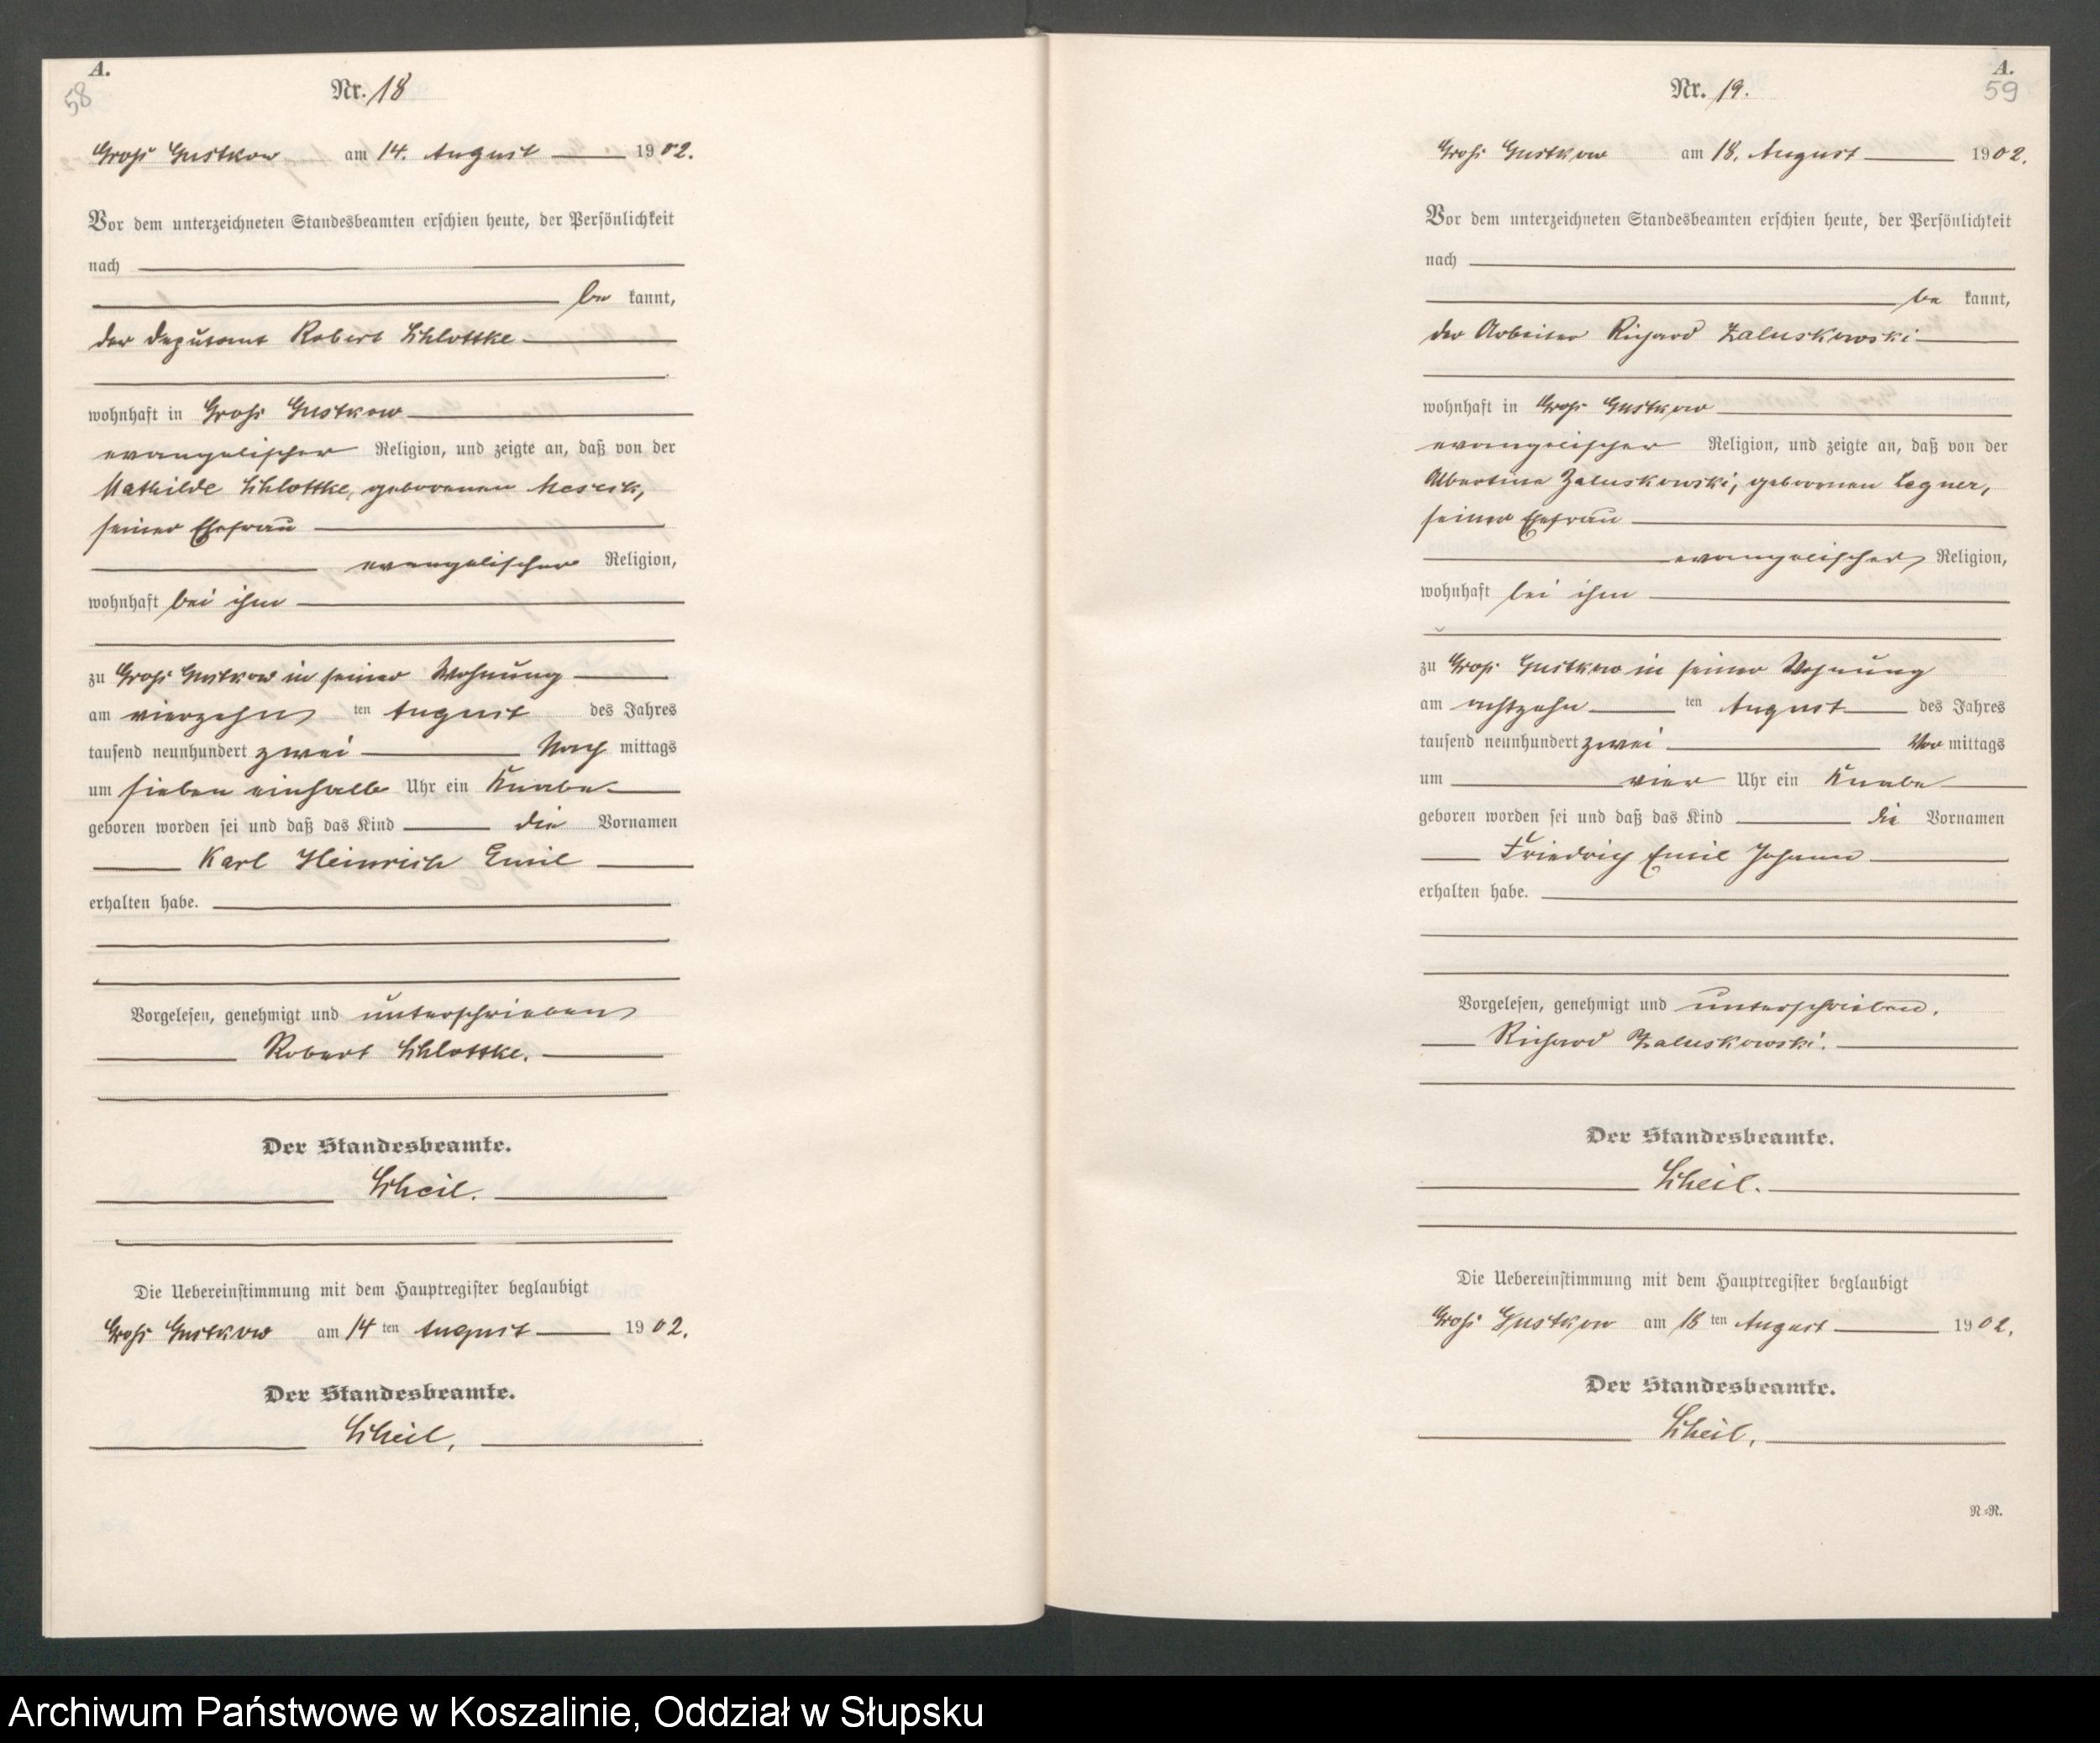 A.
58
Nr. 18
Groß Gustkow am 14. August 1902.
Vor dem unterzeichneten Standesbeamten erschien heute, der Persönlichkeit
nach
be kannt,
der Deputant Robert Schlottke
wohnhaft in Groß Gustkow
evangelischer Religion, und zeigte an, daß von der
Mathilde Schlottke, geborenen
seiner Ehefrau
evangelischer Religion,
wohnhaft bei ihm
zu Groß Gustkow in seiner Wohnung
am vierzehn ten August des Jahres
tausend neunhundert zwei Nach mittags
um sieben einhalb Uhr ein Knabe
geboren worden sei und daß das Kind die Vornamen
Karl Heinrich Emil
erhalten habe.
Vorgelesen, genehmigt und unterschrieben
Robert Schlottke.
Der Standesbeamte.
Scheil.
Die Uebereinstimmung mit dem Hauptregister beglaubigt
Groß Gustkow am 14 ten August 1902.
Der Standesbeamte.
Scheil.
A.
59
Nr. 19.
Groß Gustkow am 18. August 1902.
Vor dem unterzeichneten Standesbeamten erschien heute, der Persönlichkeit
nach
be kannt,
der Arbeiter Richard Zaluskowski
wohnhaft in Groß Gustkow
evangelischer Religion, und zeigte an, daß von der
Albertine Zaluskowski, geborenen Legner,
seiner Ehefrau
evangelischer Religion,
wohnhaft bei ihm
zu Groß Gustkow in seiner Wohnung
am achtzehn ten August des Jahres
tausend neunhundert zwei Vor mittags
um vier Uhr ein Knabe
geboren worden sei und daß das Kind die Vornamen
Friedrich Emil Johann
erhalten habe.
Vorgelesen, genehmigt und unterschrieben.
Richard Zaluskowski.
Der Standesbeamte.
Scheil.
Die Uebereinstimmung mit dem Hauptregister beglaubigt
Groß Gustkow am 18 ten August 1902.
Der Standesbeamte.
Scheil.
N.=R.
Archiwum Państwowe w Koszalinie, Oddział w Słupsku